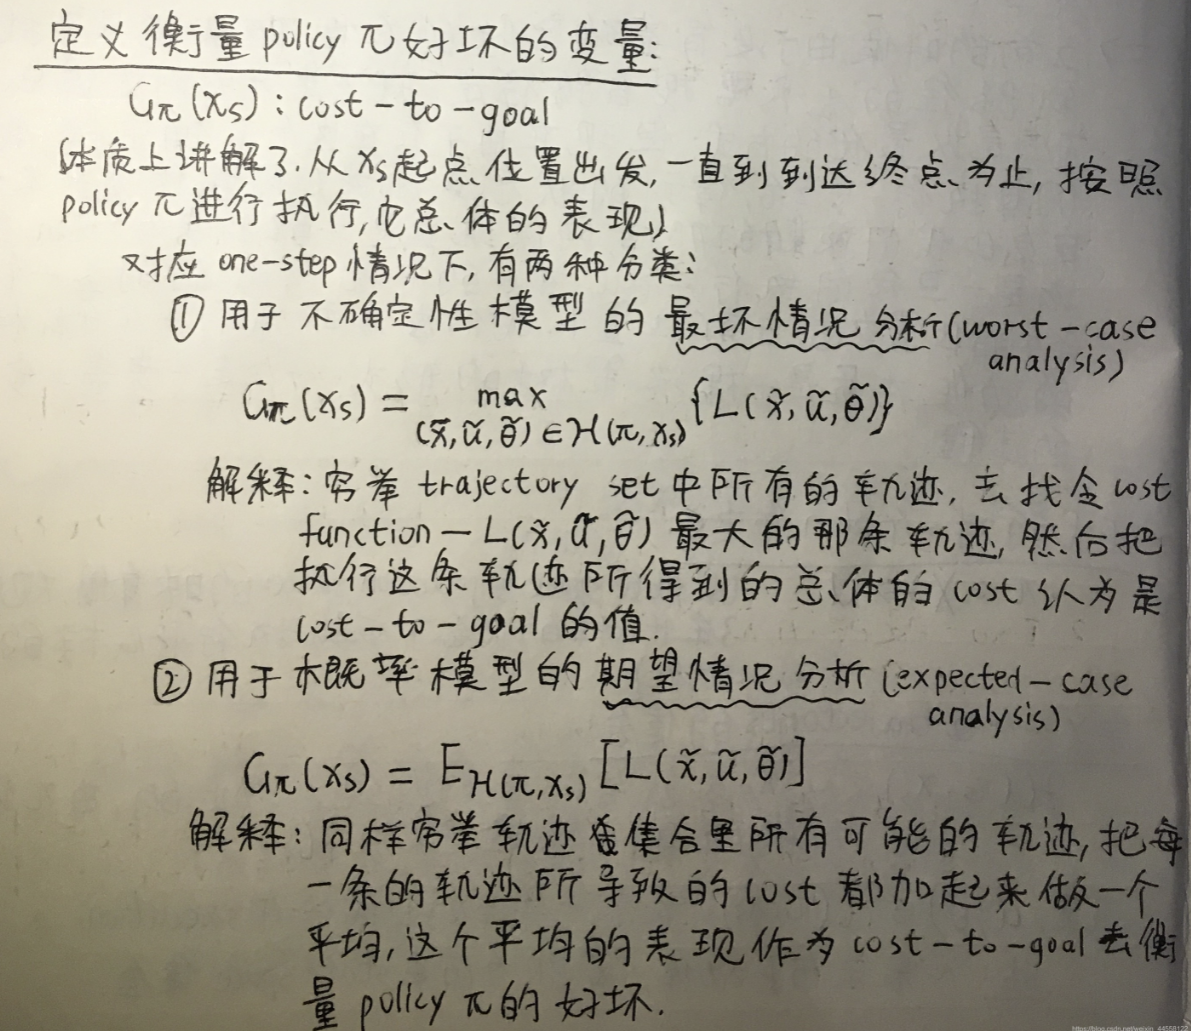 定义衡量policy π好坏的变量:
Gπ(xs): cost-to-goal
(本质上讲解了.从xs起点位置出发,一直到到达终点为止,按照
policy π进行执行,它总体的表现)
对应one-step情况下,有两种分类:
① 用于不确定性模型的最坏情况分析(worst-case
analysis)
Gπ(xs) = max {L(x̃,ũ,θ̃)}
(x̃,ũ,θ̃)∈H(π,xs)
解释:穷举trajectory set中所有的轨迹,去找令cost
function-L(x̃,ũ,θ̃)最大的那条轨迹,然后把
执行这条轨迹所得到的总体的cost认为是
cost-to-goal的值.
② 用于概率模型的期望情况分析(expected-case
analysis)
Gπ(xs) = E_H(π,xs) [L(x̃,ũ,θ̃)]
解释:同样穷举轨迹集合里所有可能的轨迹,把每
一条的轨迹所导致的cost都加起来做一个
平均,这个平均的表现作为cost-to-goal去衡
量policy π的好坏.
https://blog.csdn.net/weixin_44558122